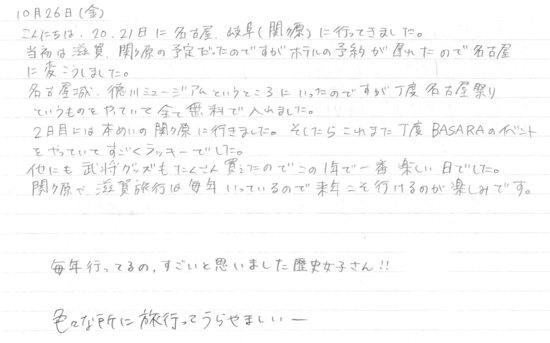 10月26日(金)
こんにちは。20、21日に名古屋、岐阜(関ヶ原)に行ってきました。
当初は滋賀、関ヶ原の予定だったのですがホテルの予約が遅れたので名古屋
に変こうしました。
名古屋城、徳川ミュージアムというところにいったのですが丁度名古屋祭り
というものをやっていて全て無料で入れました。
2日目には本めいの関ヶ原に行きました。そしたらこれまた丁度BASARAのイベント
をやっていてすごくラッキーでした。
他にも武将グッズもたくさん買えたのでこの1年で一番楽しい日でした。
関ヶ原や滋賀旅行は毎年いっているので来年こそ行けるのが楽しみです。
毎年行ってるの、すごいと思いました歴史女子さん!!
色々な所に旅行ってうらやましいー